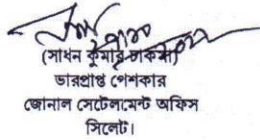 (সাধন কুমার চাকমা)
ভারপ্রাপ্ত পেশকার
জোনাল সেটেলমেন্ট অফিস
সিলেট।